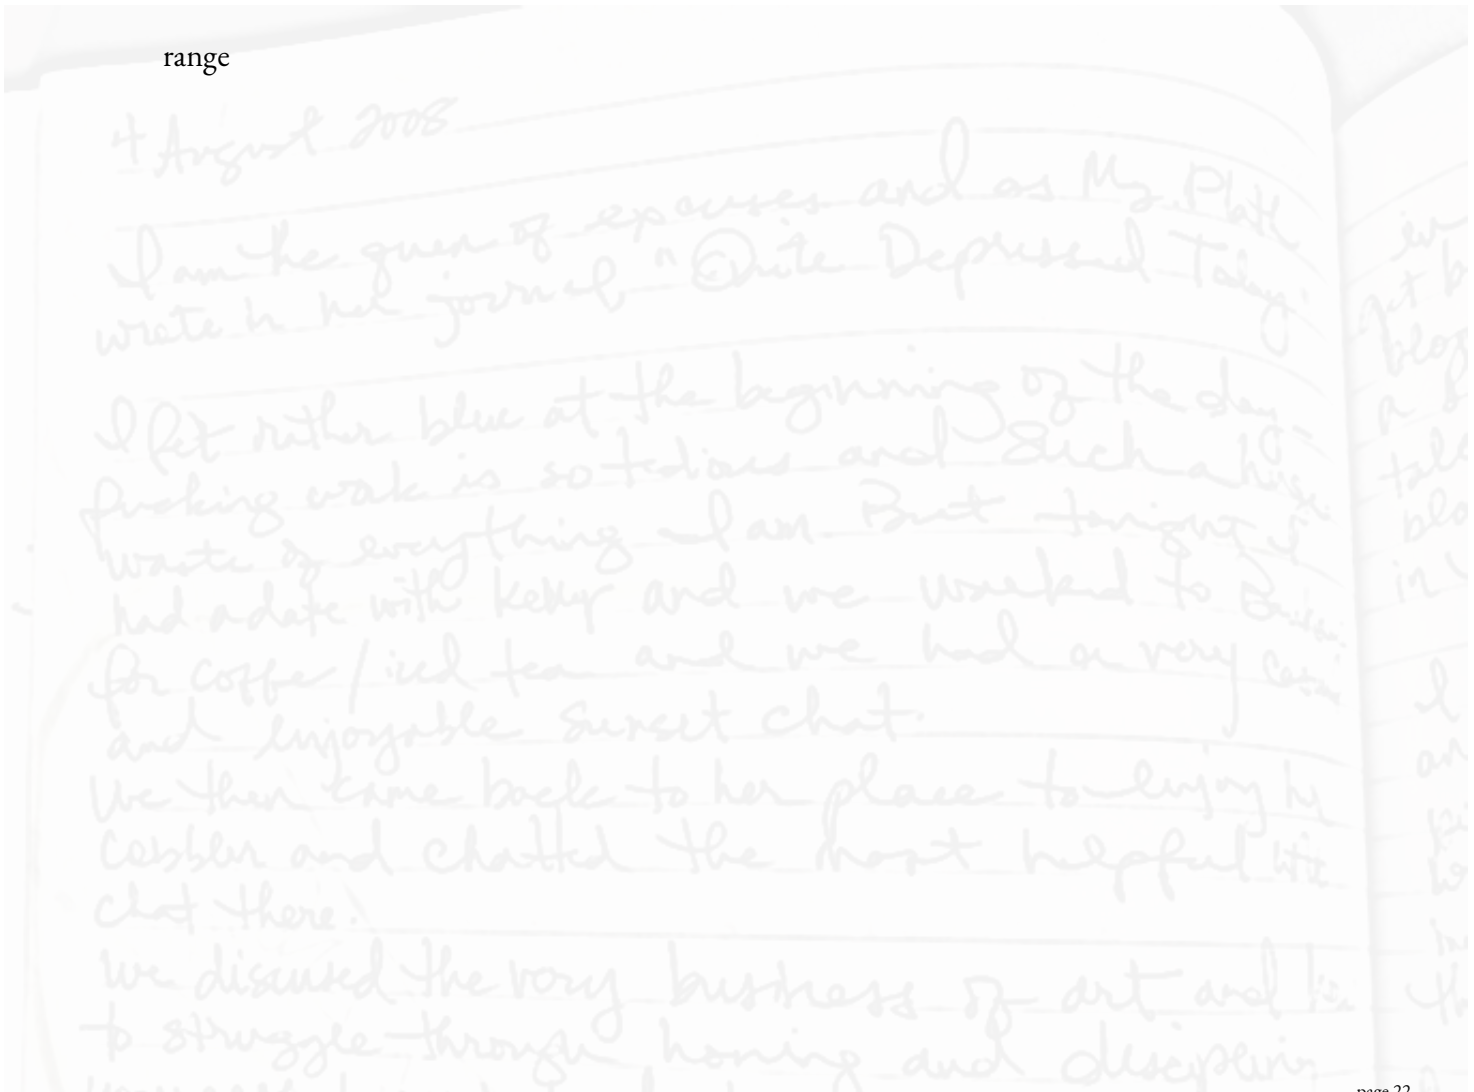 range
4 August 2008
I am the queen of excuses and as Ms. Plath
wrote in her journal "Quite Depressed Today.
I felt rather blue at the beginning of the day -
fucking work is so tedious and such a huge
waste of everything I am. But tonight I
had a date with Kelly and we walked to
for coffee / iced tea and we had a very
and enjoyable sunset chat.
We then came back to her place to enjoy her
cobbler and chatted the most helpful
chat there.
We discussed the very business of art and
to struggle through honing and
page 22